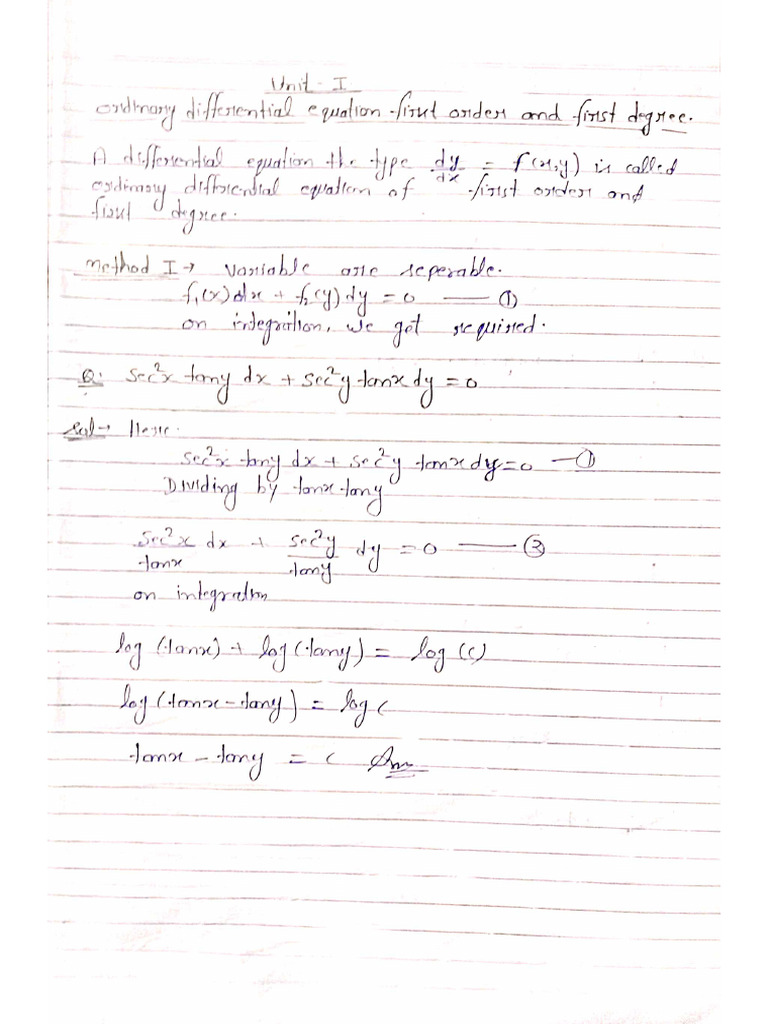 Unit - I
Ordinary differential equation first order and first degree.
A differential equation the type dy/dx = f(x,y) is called
ordinary differential equation of first order and
first degree.
Method I → Variable are seperable.
f₁(x)dx + f₂(y)dy = 0 — ①
on integration, we get required.
Q. sec²x tany dx + sec²y tanx dy = 0
Sol → Here.
sec²x tany dx + sec²y tanx dy = 0 — ①
Dividing by tanx tany
sec²x/tanx dx + sec²y/tany dy = 0 — ②
on integration
log (tanx) + log (tany) = log (c)
log (tanx - tany) = log c
tanx - tany = c Ans